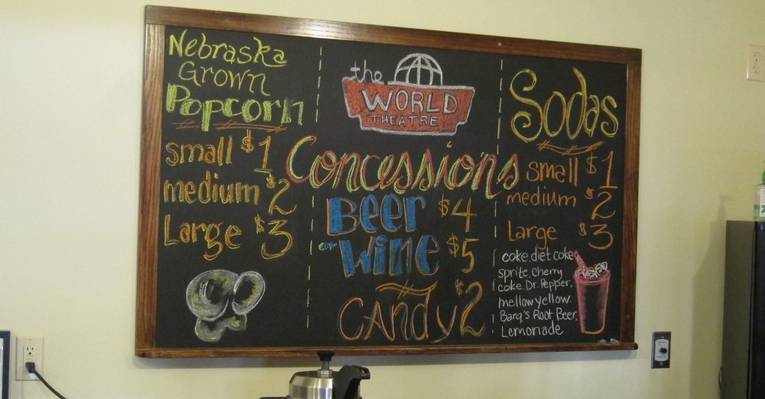 Nebraska
Grown
Popcorn
small $1
medium $2
Large $3
the
WORLD
THEATRE
Concessions
Beer $4
Wine $5
CANDY $2
Sodas
small $1
medium $2
Large $3
coke diet coke
sprite, cherry
coke Dr. Pepper,
mellow yellow.
Barq's Root Beer,
Lemonade